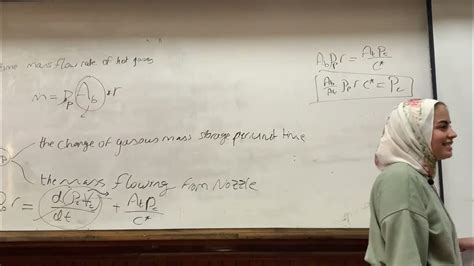 mass flow rate of hot gases
ṁ = ρp Ab *r
the change of gasous mass storage per unit time
the mass flowing from Nozzle
r = d(ρc Vc)/dt + AtPc/C*
Abρpr = AtPc/C*
Ab/At ρpr C* = Pc